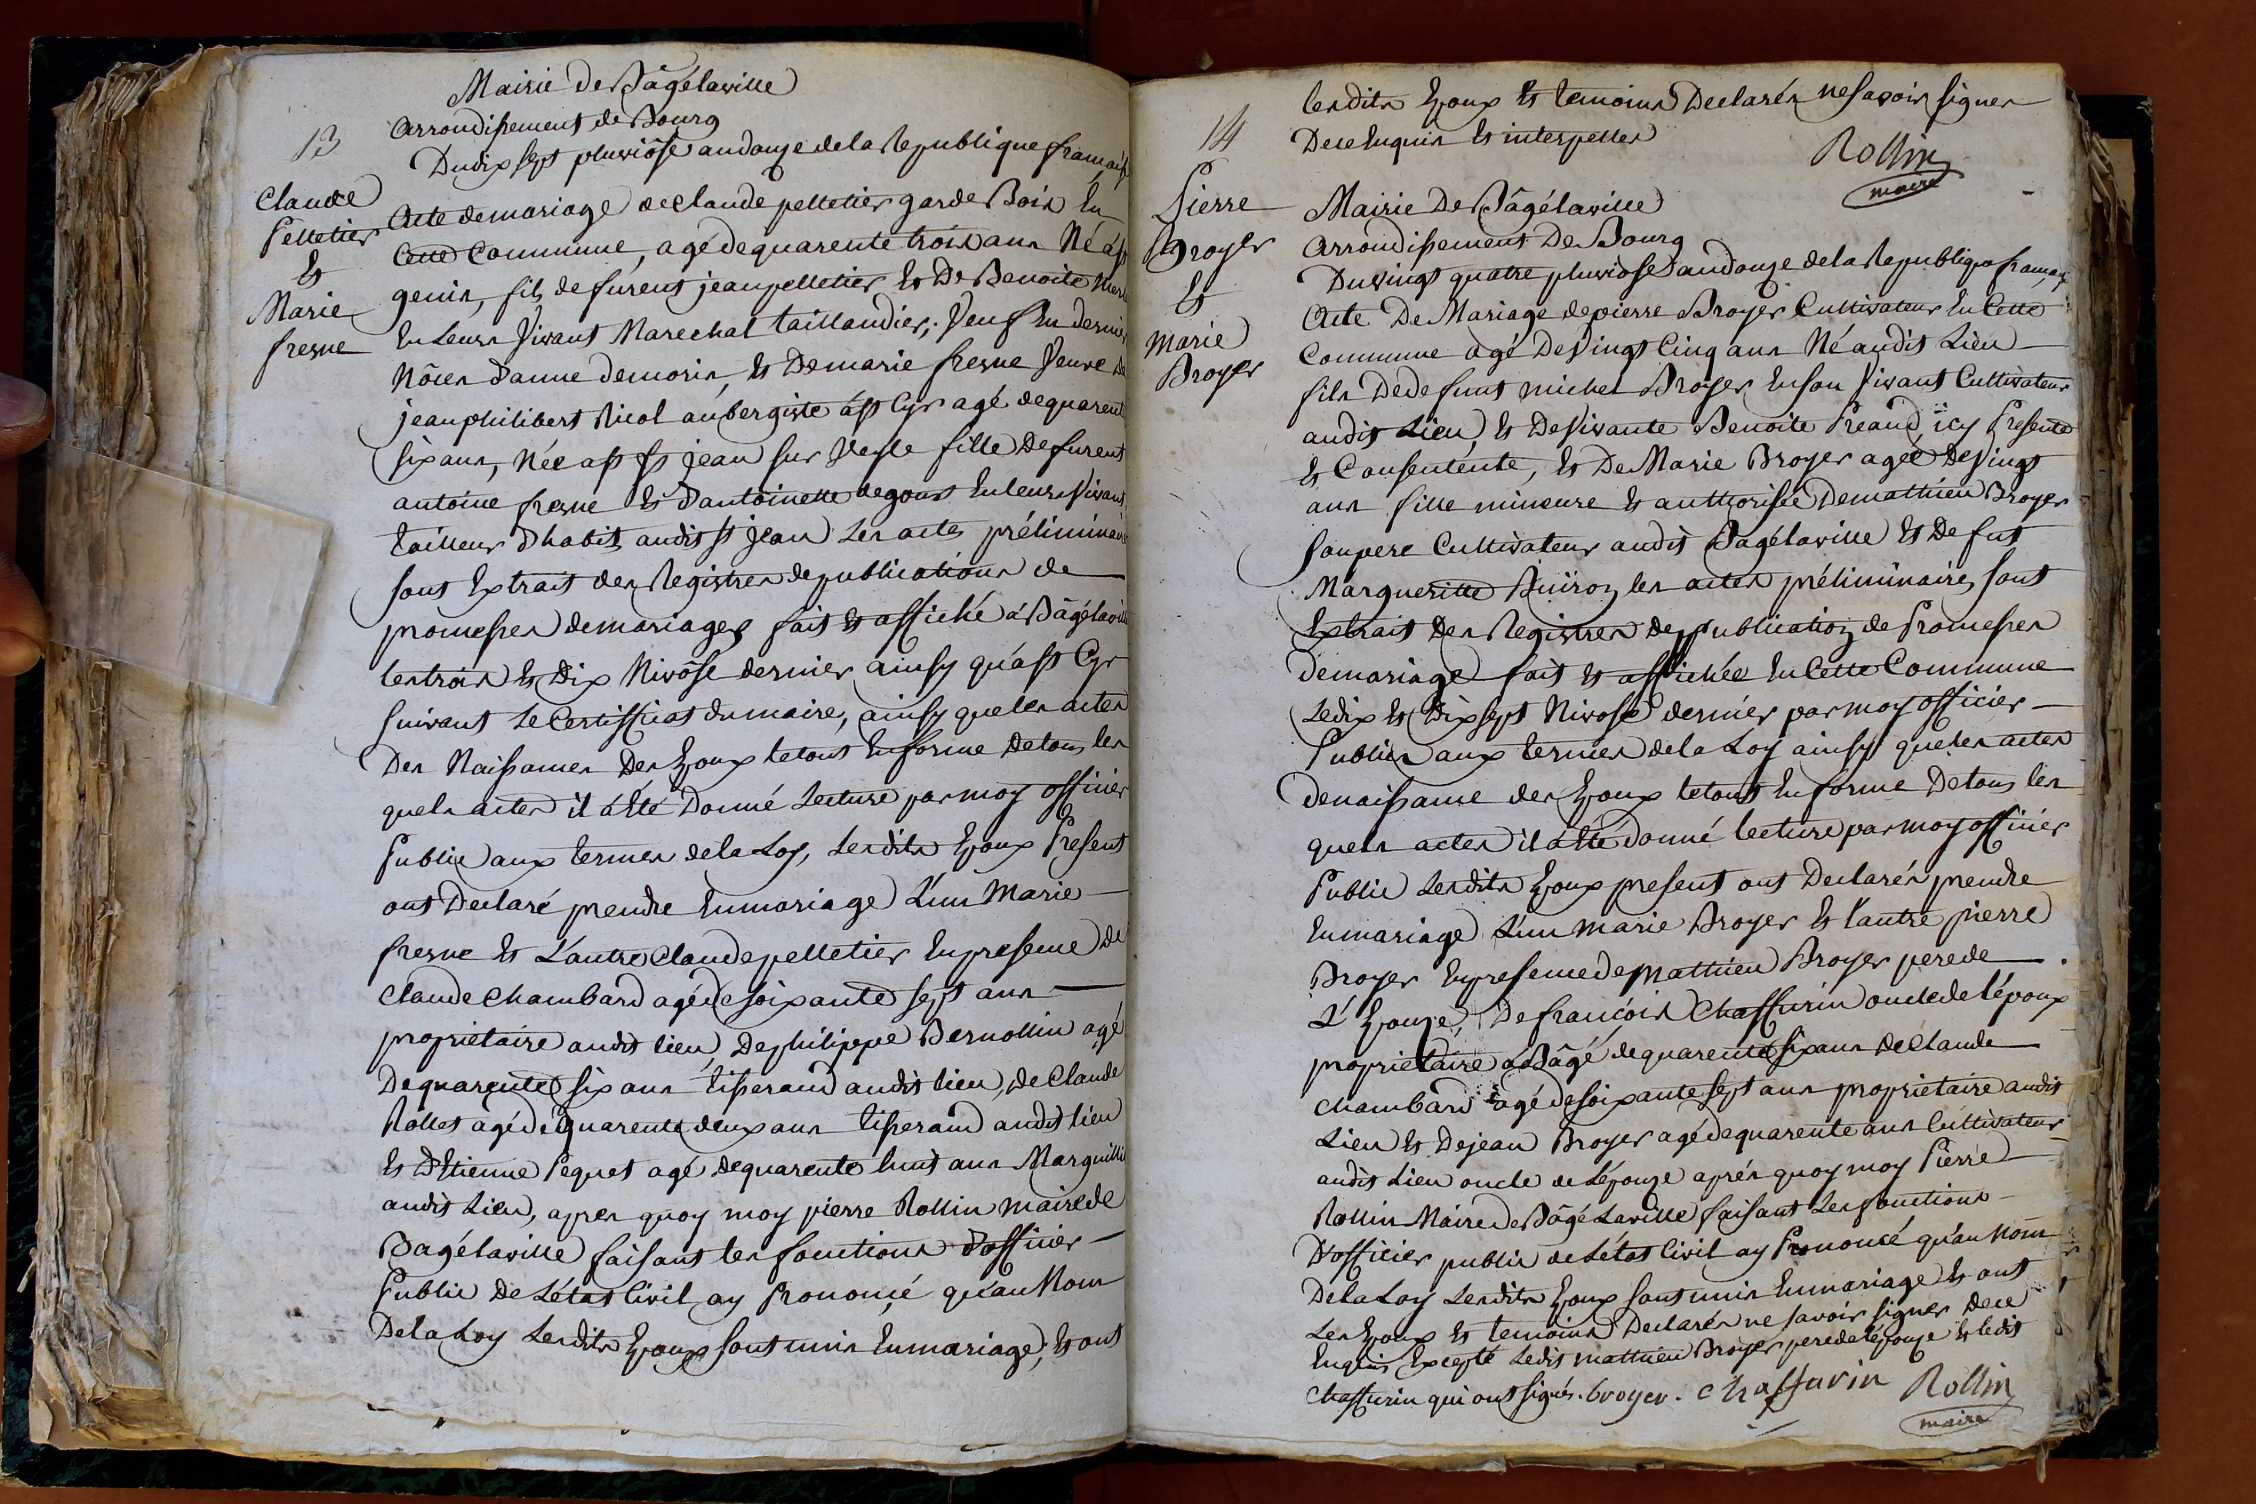 Mairie de Bâgélaville
arrondissement de Bourg
13
Du dix sept pluviôse an douze de la Republique français
Claude
Pelletier
Et
Marie
fresne
Acte de mariage de Claude pelletier garde Bois En
Cette Commune, agé de quarente trois ans Né a st
genis, fils de furent jean pelletier Et De Benoite
En Leurs Vivant Marechal taillandier, Veuf En dernier
Nôces d'anne demoris, Et De marie fresne Veuve de
jean philibert Nicol aubergiste á st Cyr agé de quarent
six ans, Née a st jean sur Vesle fille De furent
antoine fresne Et d'antoinette degout En leurs Vivant
tailleur d'habit audit st jean Les actes préliminair
sont Extrait des Registres de publications de
promesses de mariages fait Et affiché á Bâgélaville
les trois Et Dix Nivôse dernier ainsy qu'a st Cyr
suivant Le Certifficat du maire, ainsy que les actes
Des Naissances Des Epoux le tout En forme De tous les
quels actes il á Eté Donné Lecture par moy officier
Public aux termes de la Loy, Les dits Epoux Present
ont Declaré prendre En mariage L'un Marie
fresne Et L'autre Claude pelletier En presence de
Claude Chambard agé de soixante sept ans
proprietaire audit lieu, De philippe Bernollin agé
De quarente six ans tisserand audit lieu, de Claude
Rollet agé de quarente deux ans tisserand audit lieu
Et D'Etienne Pequet agé de quarente huit ans Marguillier
audit Lieu, apres quoy moy pierre Rollin maire de
Bagélaville faisant les fonctions d'officier
Public de L'état Civil ay Prononcé qu'au Nom
De la Loy Les dits Epoux sont unis En mariage, Et ont
les dits Epoux Et temoins Declarés ne savoir signer
De ce Enquis Et interpellés
Rollin
maire
14
Pierre
Broyer
Et
Marie
Broyer
Mairie De Bâgélaville
arrondissement De Bourg
Du Vingt quatre pluviose an douze de la Republique française
Acte De Mariage de pierre Broyer Cultivateur En Cette
Commune agé De Vingt Cinq ans Né audit Lieu
fils De defunt michel Broyer En son Vivant Cultivateur
audit Lieu, Et De Vivante Benoite Preaud, icy Presente
Et Consentente, Et De Marie Broyer agée De Vingt
ans fille mineure Et authorisée De mathieu Broyer
son pere Cultivateur audit Bagélaville Et De fut
Margueritte les actes préliminaires sont
Extrait Des Registres De Publication de Promesses
de mariage fait Et affichée En Cette Commune
Le dix Et Dix sept Nivose dernier par moy officier
Public aux termes de la Loy ainsy que les actes
de naissance des Epoux le tout En forme De tous les
quels actes il á Eté donné lecture par moy officier
Public Les dits Epoux present ont Declarés prendre
En mariage L'un Marie Broyer Et l'autre pierre
Broyer En presence de Mathieu Broyer pere de
L'Epouze, De françois Chaffurin oncle de l'époux
proprietaire á Bâgé de quarente six ans de Claude
Chambard agé de soixante sept ans proprietaire audit
Lieu Et De jean Broyer agé de quarente ans Cultivateur
audit Lieu oncle de L'épouze aprés quoy moy Pierre
Rollin Maire de Bâgé Laville faisant Les fonctions
D'officier public de L'état Civil ay Prononcé qu'au Nom
De la Loy Les dits Epoux sont unis En mariage Et ont
Les Epoux Et temoins Declarés ne savoir signer De ce
Enquis Excepté Ledit mathieu Broyer pere de l'épouze Et ledit
Chaffurin qui ont signés. broyer. chaffurin Rollin
maire